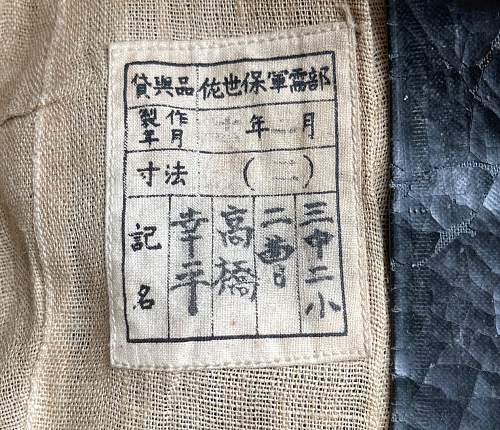 貸與品 佐世保軍需部
製作年月 年 月
寸法 (二)
記名
三中二小
二曲
高橋
幸平